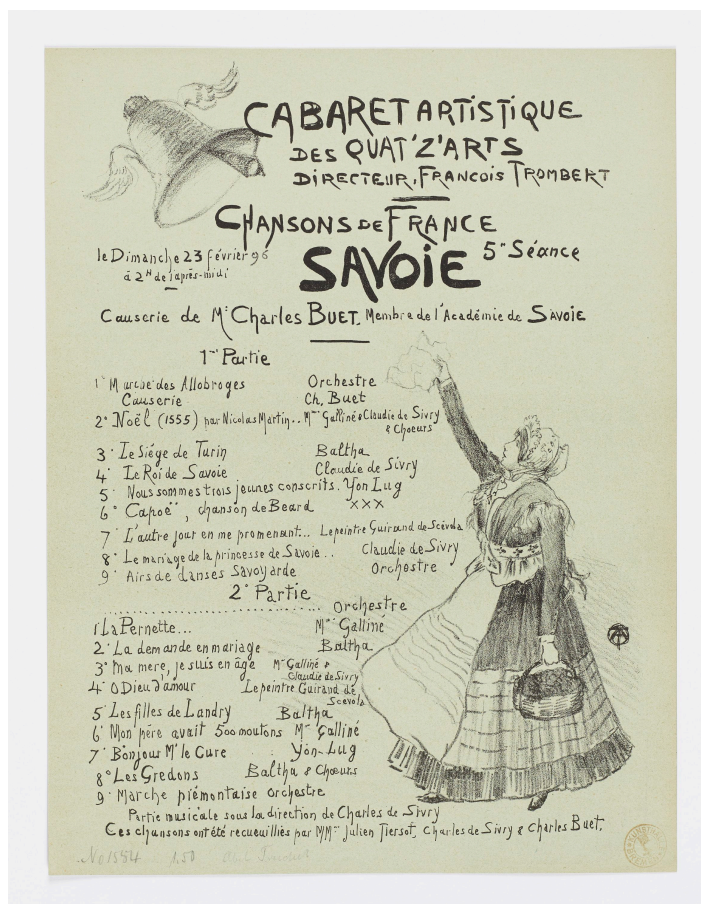 CABARET ARTISTIQUE
DES QUAT'Z'ARTS
DIRECTEUR, FRANCOIS TROMBERT
CHANSONS DE FRANCE
le Dimanche 23 février 96
à 2H de l'après-midi
SAVOIE 5e Séance
Causerie de Mr Charles BUET. Membre de l'Académie de SAVOIE
1re Partie
1° Marche des Allobroges Orchestre
Causerie Ch. Buet
2° Noël (1555) par Nicolas Martin.. Mme Galliné & Claudie de Sivry
& Choeurs
3° Le Siége de Turin Baltha
4° Le Roi de Savoie Claudie de Sivry
5° Nous sommes trois jeunes conscrits. Yon Lug
6° Capoë, chanson de Beard XXX
7° L'autre jour en me promenant... Le peintre Guirand de Scévola
8° Le mariage de la princesse de Savoie... Claudie de Sivry
9° Airs de danses Savoyarde Orchestre
2e Partie
.............................. Orchestre
1 La Pernette... Mme Galliné
2° La demande en mariage Baltha
3° Ma mere, je suis en âge Me Galliné &
Claudie de Sivry
4° O Dieu d'amour Le peintre Guirand de
Scevola
5° Les filles de Landry Baltha
6° Mon père avait 500 moutons Me Galliné
7° Bonjour Mr le Cure Yon-Lug
8° Les Gredons Baltha & Choeurs
9° Marche piémontaise Orchestre
Partie musicale sous la direction de Charles de Sivry
Ces chansons ont été recueuillies par MMrs Julien Tiersot, Charles de Sivry & Charles Buet.
No 1554 1.50